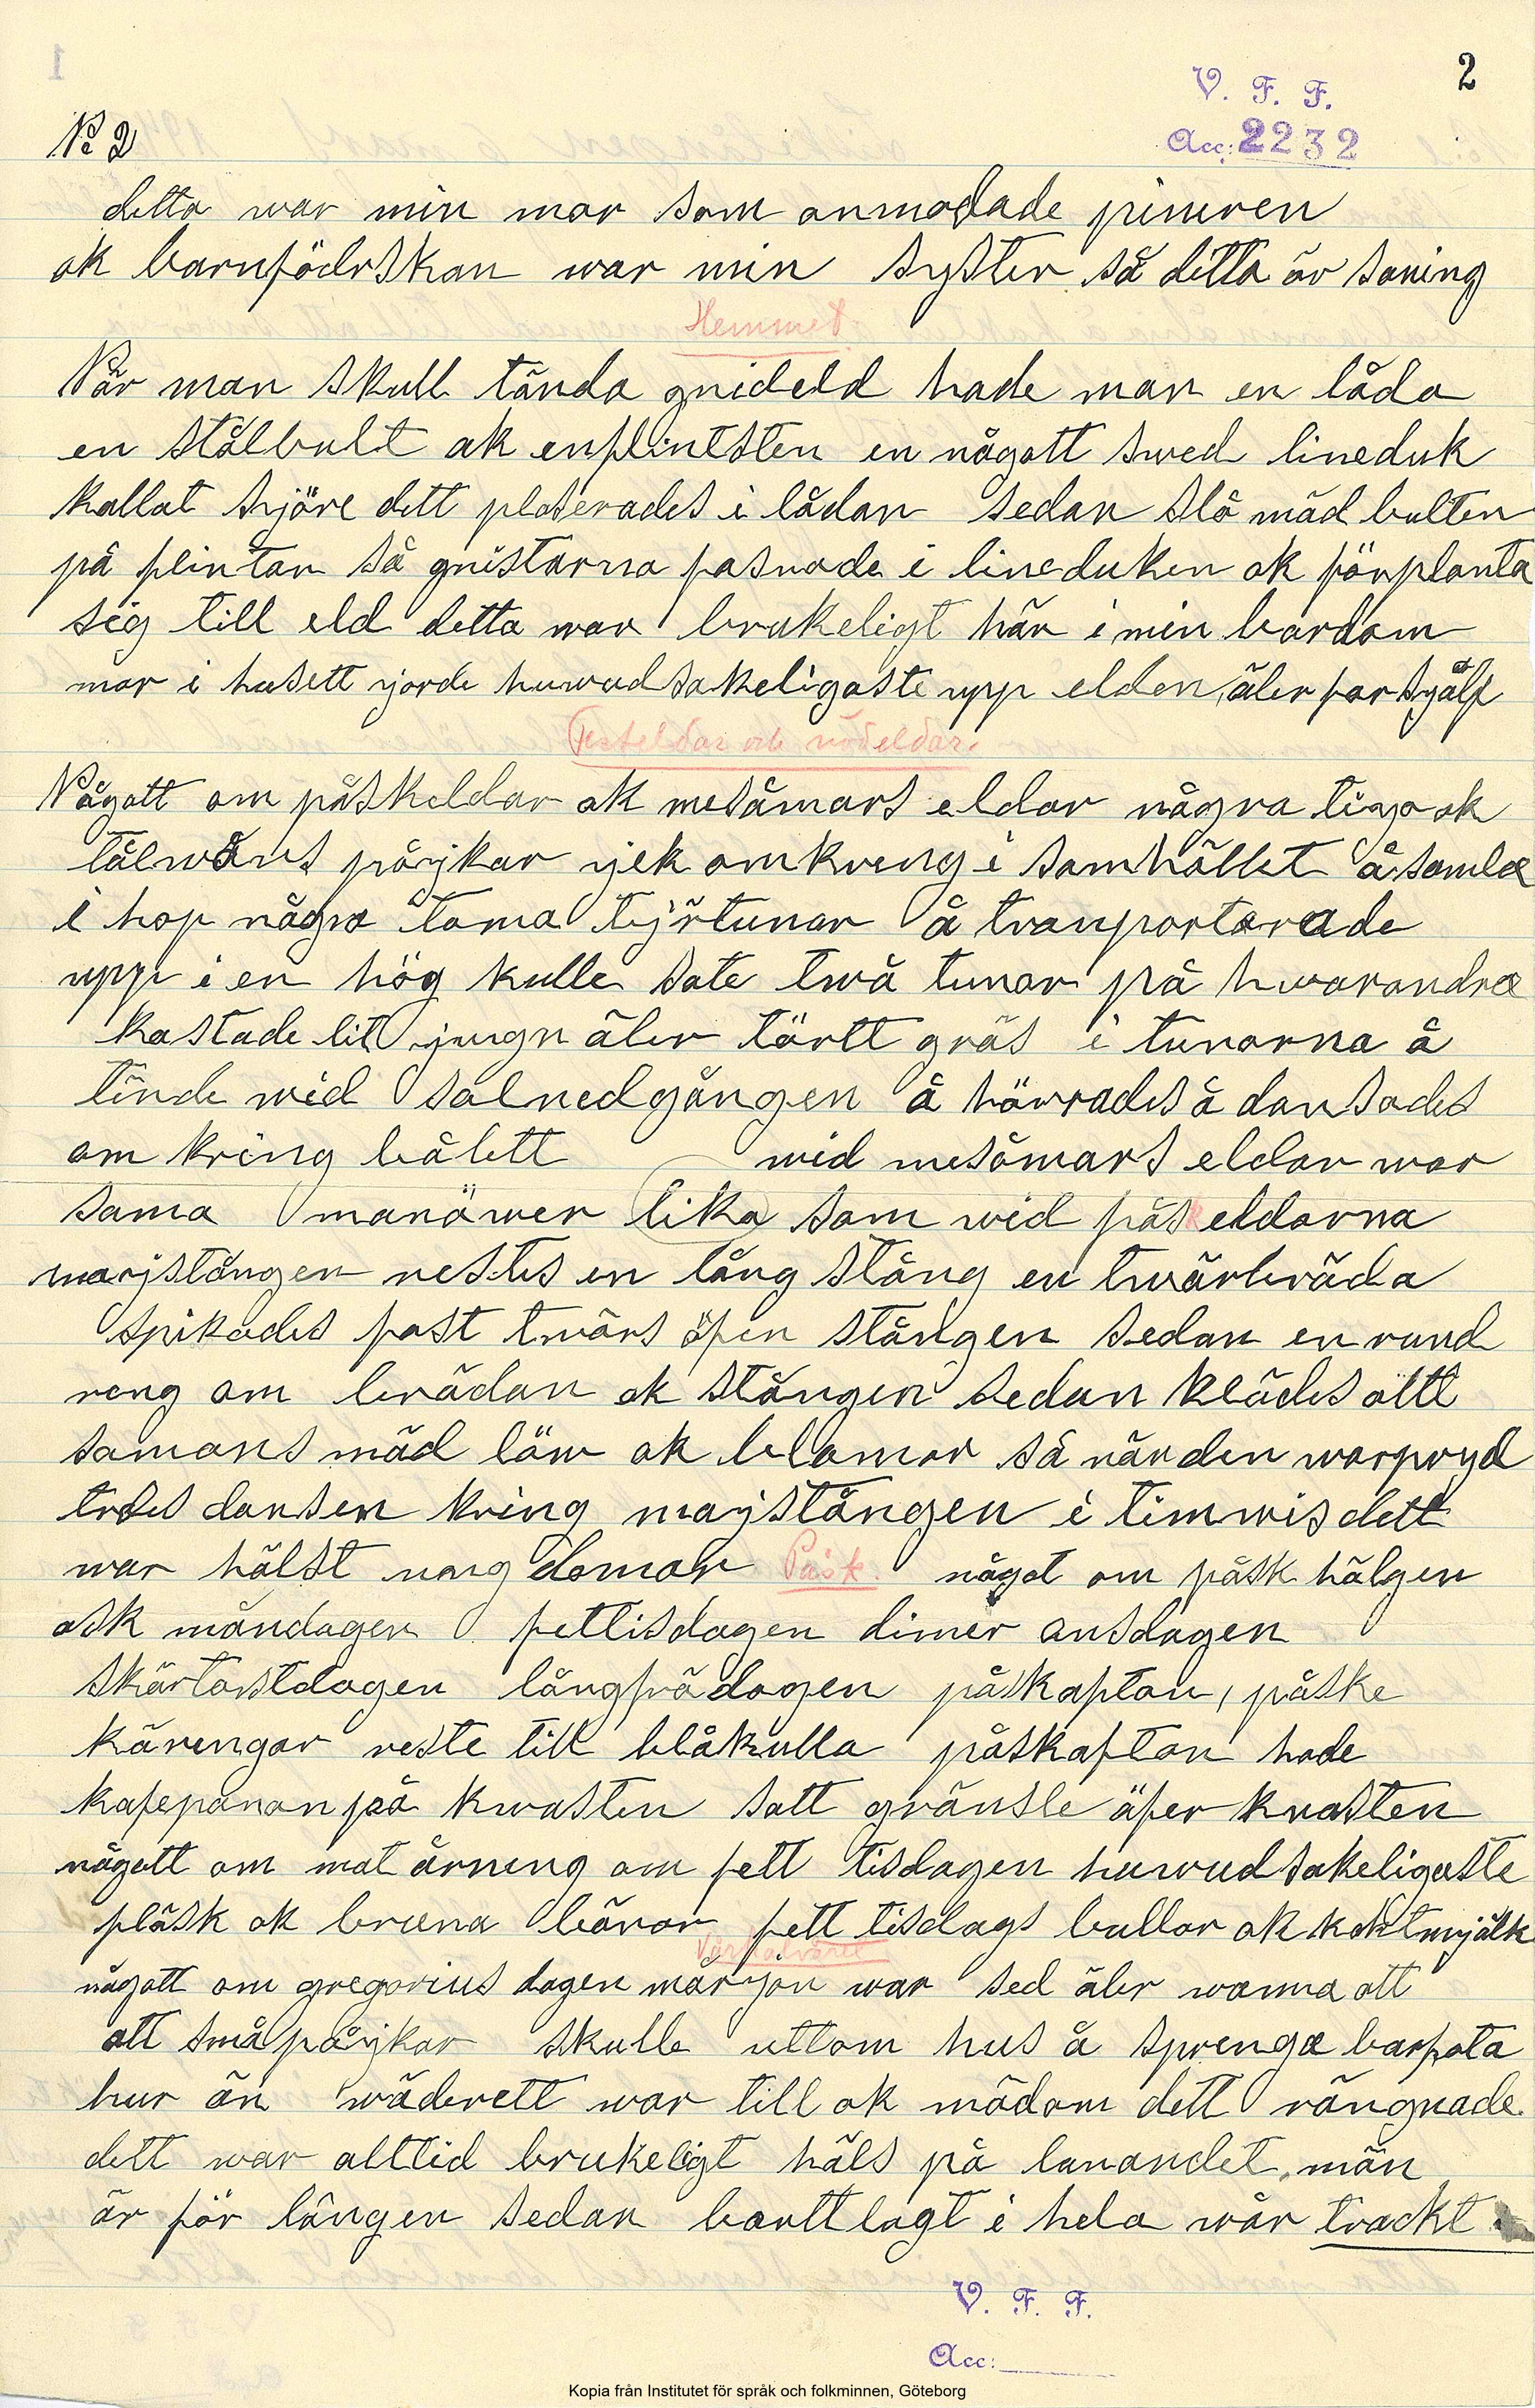 2
V. F. F.
Acc: 2232
No 2
detta war min mor som anmodade pineren
ok barnfödrskan war min syster så detta är saning
Hemmet.
När man skull tända gnideld hade man en låda
en stålbult ok enflintsten en någott swed lineduk
kallat sjöre dett plaserades i lådan sedan slå mäd bulten
på flintan så gnistarna fasnade i lineduken ok förplanta
sig till eld detta war brukeligt här i min bardom
mor i husett jorde huwudsakeligaste upp elden äler far själf
Festeldar och nödeldar.
Någott om påskeldar ok mesåmars eldar några tio ok
tålwåns påjkar jek omkreng i samhället å samla
i hop några toma tjärtunar å tranportarade
upp i en hög kulle sate twå tunar på hwarandra
kastade lit jungn äler törtt gräs i tunarna å
tände wid solnedgången å hörrades å dansades
om kring bålett wid mesåmars eldar war
sama manöwer lika som wid påskeldarna
majstången restes en lång stång en twärbräda
spikades fast twärs öfen stången sedan en rund
reng om brädan ok stången sedan klädes altt
samans mäd löw ok blomor så när den warpryd
trdes dansen kring majstången i timwis dett
war hälst ungdomar Påsk. något om påsk hälgen
ask måndagen fettisdagen dimer ansdagen
skärtorstdagen långfrädagen påskaftan, påske
kärengar reste till blåkulla påskaftan hade
kafepanan på kwasten satt gränsle äfer kwasten
någott om mat årneng om fett tisdagen huwudsakeligaste
fläsk ok bruna bönor fett tisdags bullar ok koktmjälk
någott om gregorius dagen märjön war sed äler wanna att
att små påjkar skulle uttom hus å sprenga barfota
hur än wäderett war till ok mädom dett rängnade.
dett war alltid brukeligt häls på lanandet, män
är för längen sedan bortt lagt i hela wår trackt
V. F. F.
Acc:
Kopia från Institutet för språk och folkminnen, Göteborg